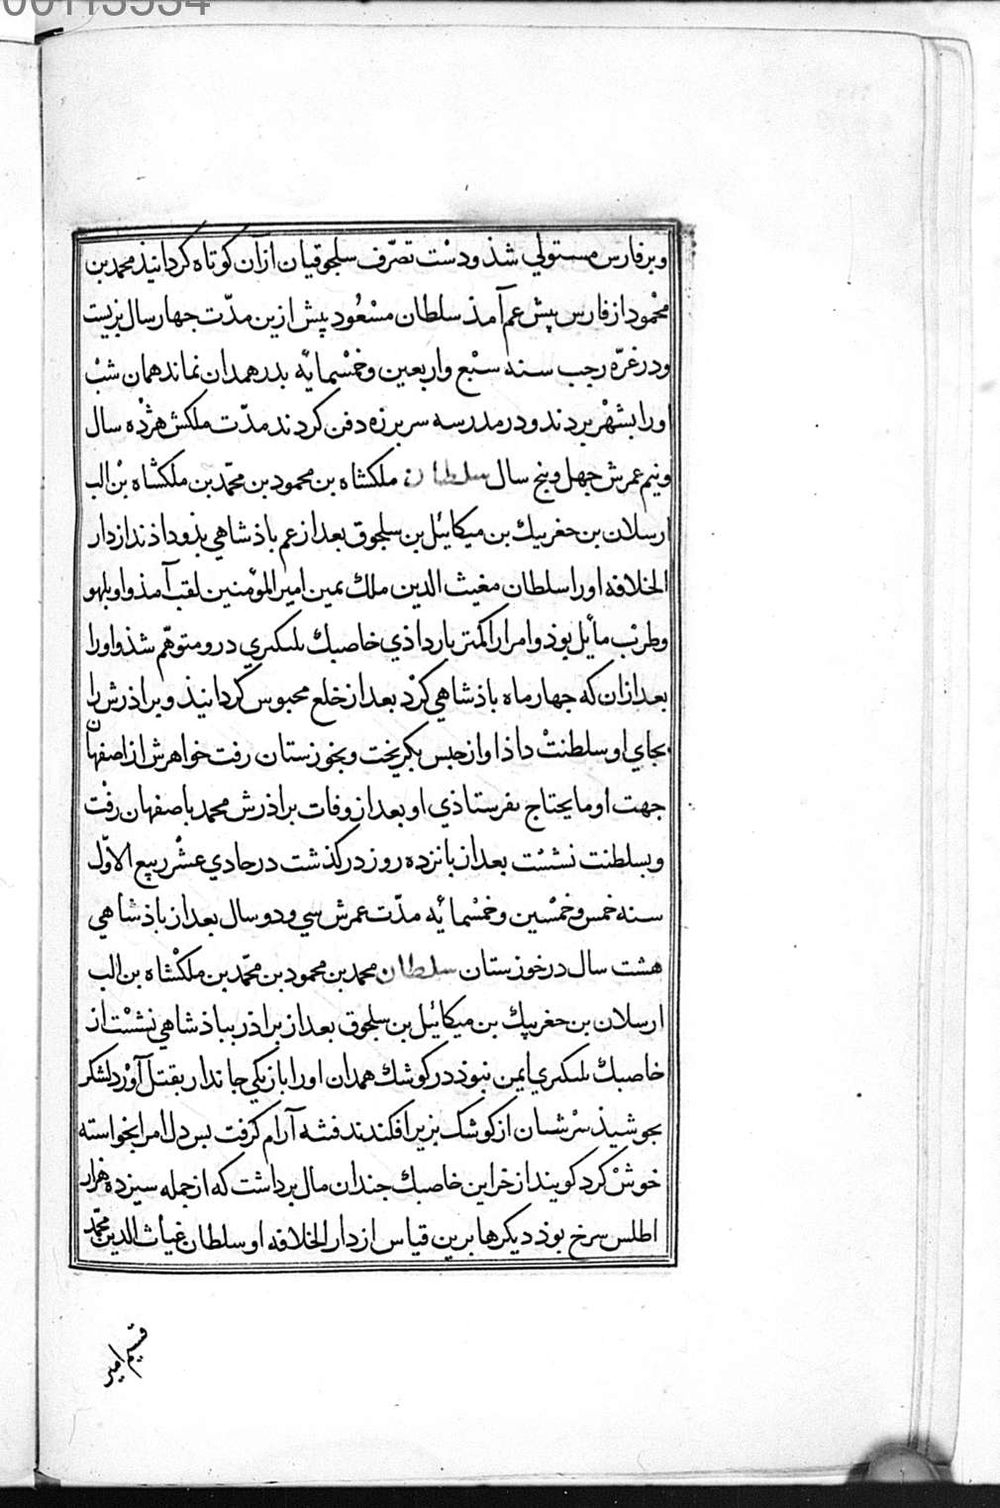 00113534
وبرفارس مستولي شذ ودست تصرّف سلجوقيان ازآن كوتاه كردانيذ محمد بن
محمود از فارس پيش عم آمذ سلطان مسعود پيش ازين مدّت جهار سال بزيست
ودرغرّه رجب سنه سبع واربعين وخمسمايه بدر همدان نماند همان شب
اورا بشهر بردند ودر مدرسه سربرزه دفن كردند مدّت ملكش هژده سال
ونيم عمرش جهل وپنج سال سلطان ملكشاه بن محمود بن محمّد بن ملكشاه بن الب
ارسلان بن جغريبك بن ميكائيل بن سلجوق بعد از عم باذشاهي بذو داذند از دار
الخلافه اورا سلطان مغيث الدين ملك يمين امير المؤمنين لقب آمذ واو بلهو
وطرب مائل بوذ وامرا را كمتر بار داذي خاصبك بلنكري درو متوهّم شذ واورا
بعد ازان كه جهار ماه باذشاهي كرد بعد از خلع محبوس كردانيذ وبراذرش را
بجاي او سلطنت داذ او از حبس بكريخت وبخوزستان رفت خواهرش از اصفهان
جهت او مايحتاج بفرستاذي او بعد از وفات براذرش محمد باصفهان رفت
وبسلطنت نشست بعد از بانزده روز دركذشت در حادي عشر ربيع الاوّل
سنه خمس وخمسين وخمسمائه مدّت عمرش سي ودو سال بعد از باذشاهي
هشت سال در خوزستان سلطان محمد بن محمود بن محمّد بن ملكشاه بن الب
ارسلان بن جغريبك بن ميكائيل بن سلجوق بعد از براذر بباذشاهي نشست از
خاصبك بلنكري ايمن نبوذ در كوشك همدان اورا با زنكي جاندار بقتل آورد لشكر
بجوشيذ سرشان از كوشك بزير افكندند فتنه آرام كرفت بس دل امرا بخواسته
خوش كرد كويند از خزاين خاصبك جندان مال برداشت كه از جمله سيزده هزار
اطلس سرخ بوذ ديكرها برين قياس از دار الخلافه او سلطان غياث الدين محمّد
قسيم امير